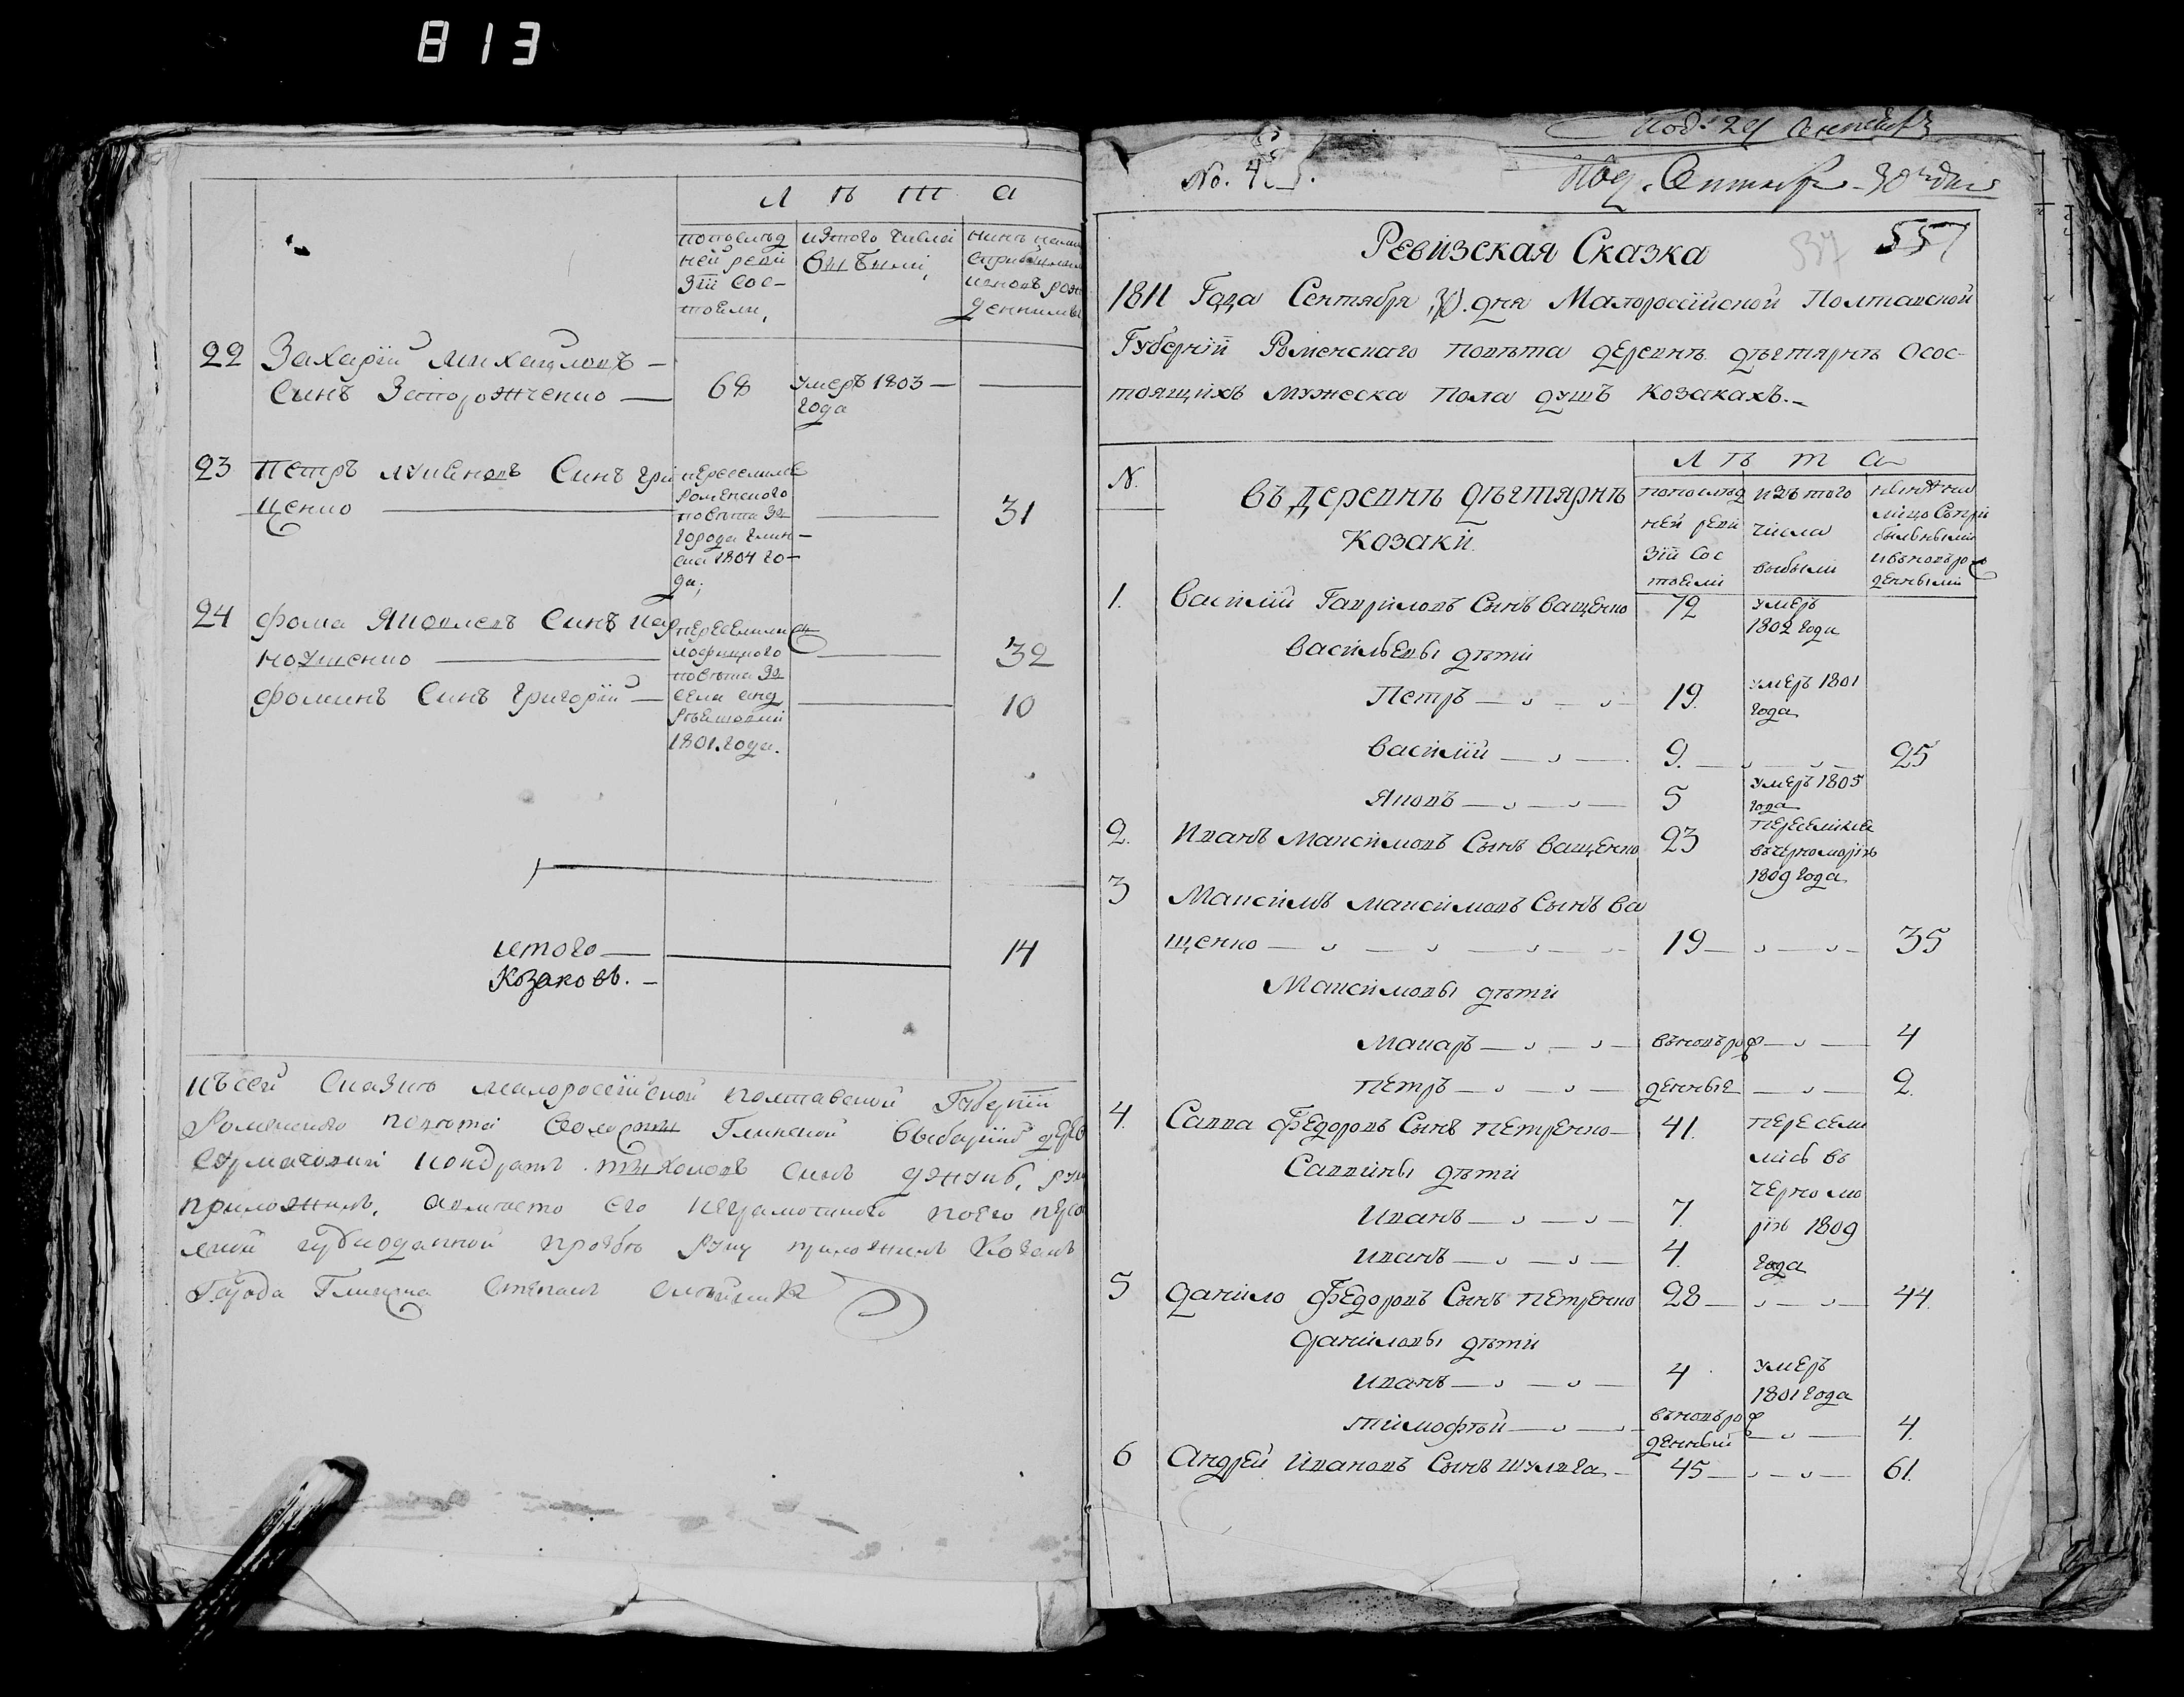 813
Л ѣ т а
попослѣд
ней реви
зіи сос-
тояли,
изтого числа
выбыли,
22 Захарій михайловъ —
Сынъ Запорожченко — 68 умеръ 1803 — —
года
23 Петръ лукяновъ Сынъ Гри
щенко — — 31
переселился
Роменского
повѣта зъ
города глин-
ска 1804 го-
да;
24 фома Яковлевъ Синъ
— 32
фоминъ Синъ григорій — — 10
переселились
повѣта зъ
села анд
1801. года.
итого — — 14
Козаковъ. —
Къ сей сказкѣ малороссійской полтавской Губерніи
Роменского повѣта волости Глинской выборній
кондратъ тихоновъ синъ
приложилъ, авмѣсто его неграмотного поего
прозбѣ руку приложилъ Козакъ
Города Глинска Степанъ
Под: 29 Сентября
No. 4
Под. Сентябр 30 дня
557
537
Ревизская Сказка
1811 Года Сентября 30. дня Малороссійской Полтавской
Губерніи Роменскаго повѣта деревнѣ дѣгтярнѣ осос-
тоящихъ мужеска пола душъ козакахъ. —
N.
въ деревнѣ дѣгтярнѣ
козаки
Л ѣ т а
попослѣд
ней реви
зіи сос
тояли
изътого
числа
выбыли
нынѣ на
лицо съпри
былыми
ивновьро
денными
1. Василій Гавриловъ Сынъ Ващенко 72 умеръ
1802 года
васильевы дѣти
Петръ — 19. умеръ 1801
года
василій — 9. — 25
Яковъ — 5 умеръ 1805
года
2. Иванъ Максимовъ Сынъ Ващенко 23 переселился
вчерноморію
1809 года
3 Максимъ максимовъ Сынъ Ва
щенко — 19 — 35
Максимовы дѣти
Макаръ — вновьро — 4
петръ — денные — 2.
4. Савва Федоровъ Сынъ петренко — 41. пересели
лись въ
черномо
рію 1809
года
Саввины дѣти
иванъ — 7.
иванъ — 4.
5 данило Федоровъ Сынъ петренко 28 — 44.
даниловы дѣти
иванъ — 4 умеръ
1801 года
тимофѣй — вновьро
денный — 4.
6 Андрей Ивановъ Сынъ шулга — 45 — 61.